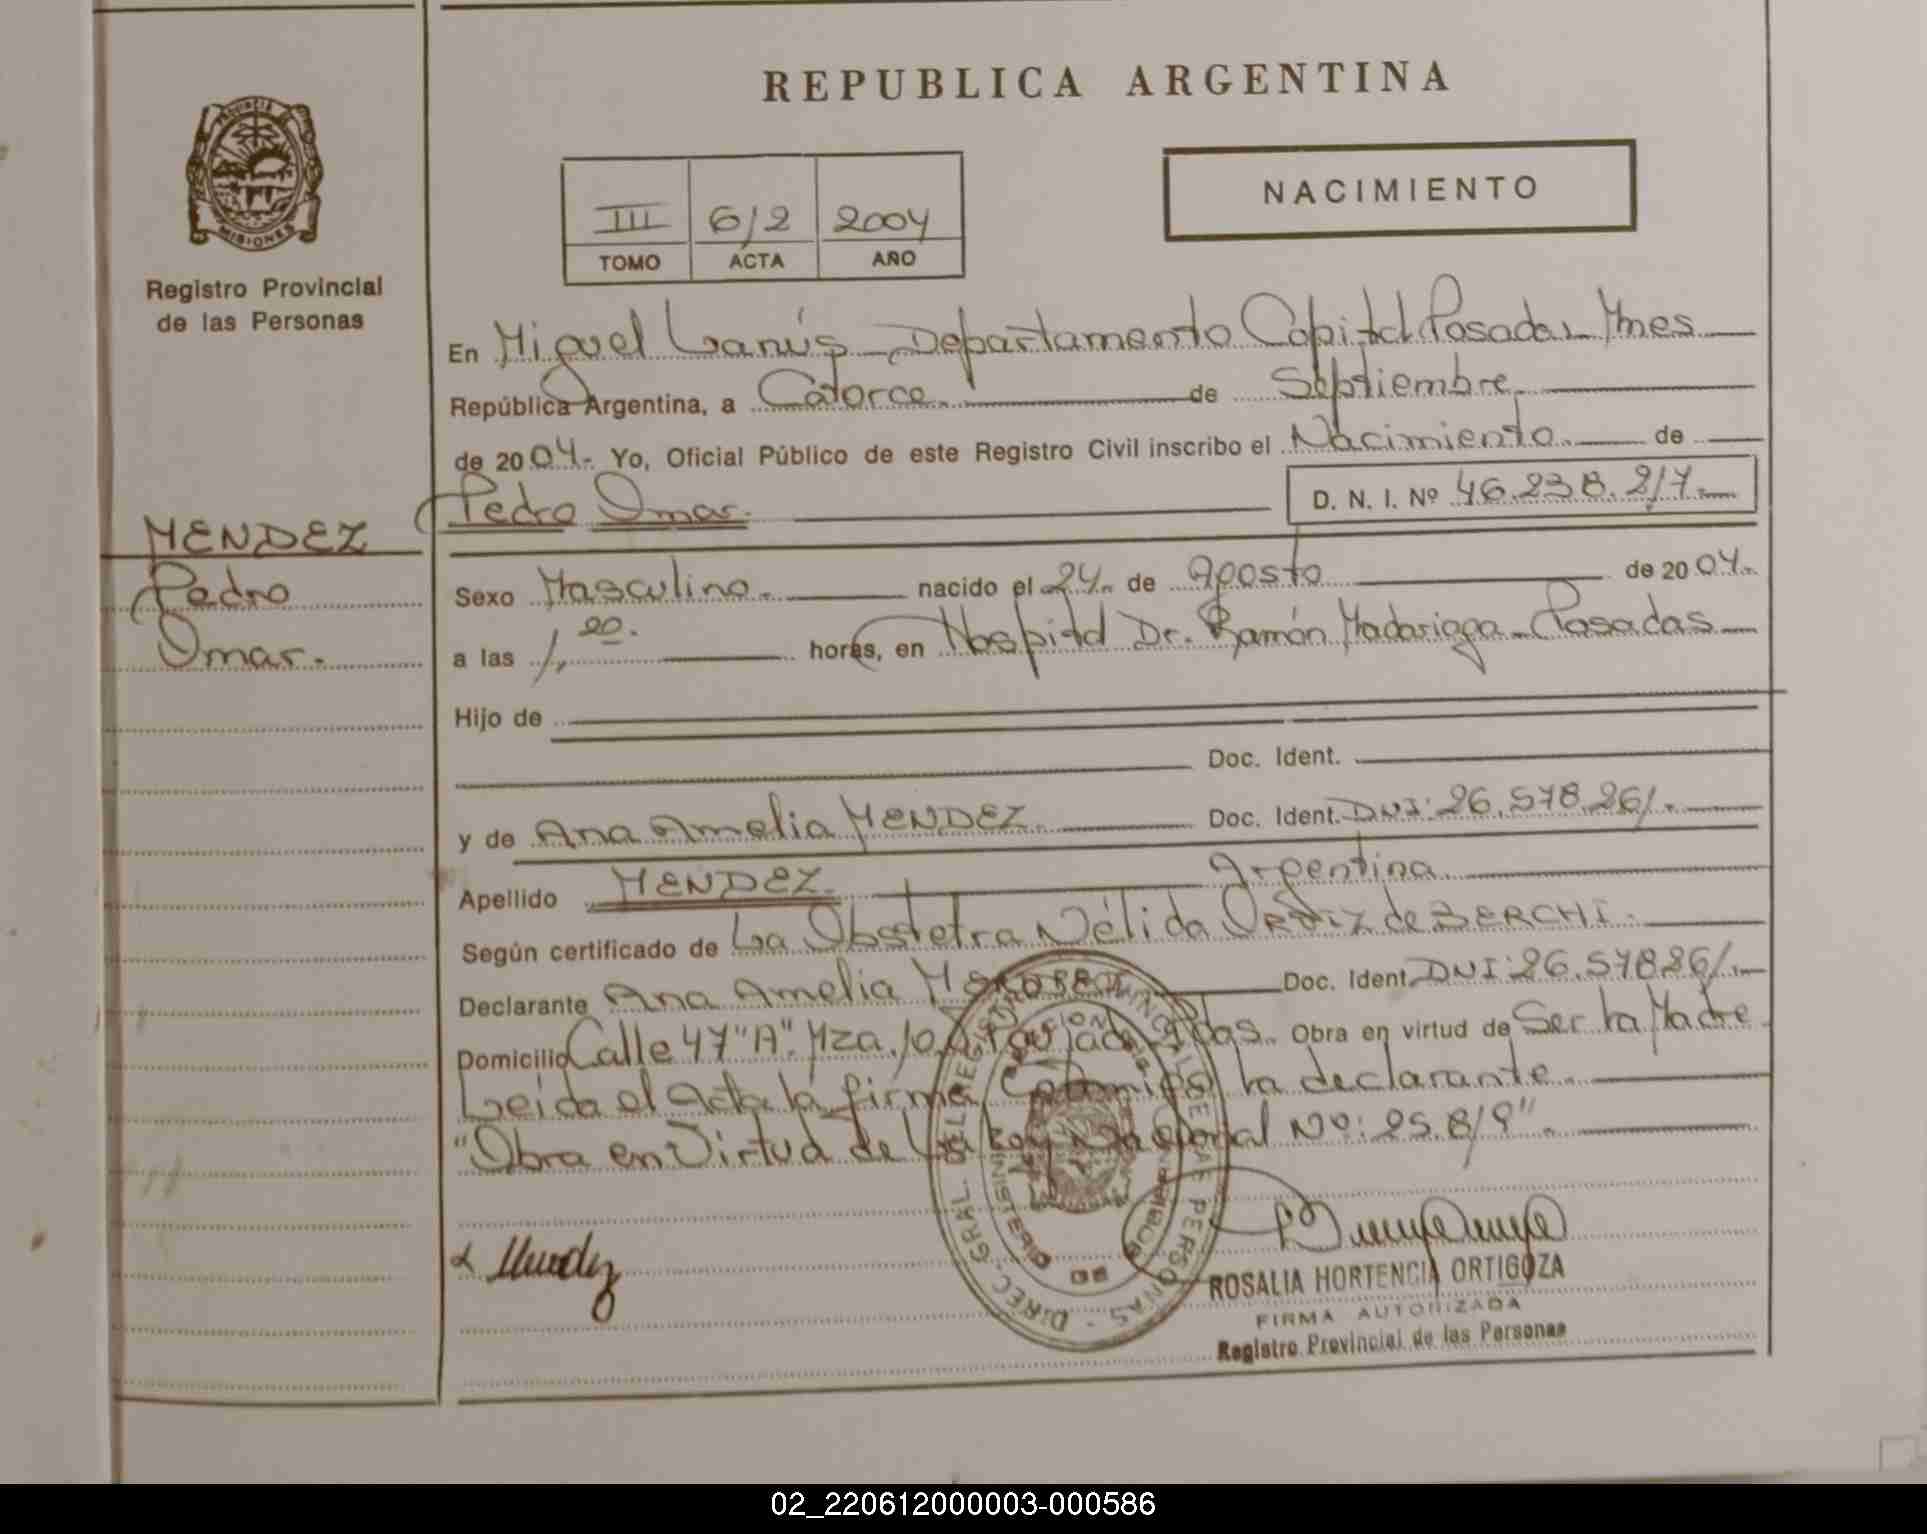 REPUBLICA ARGENTINA
PROVINCIA
MISIONES
Registro Provincial
de las Personas
NACIMIENTO
III 612 2004
TOMO ACTA AÑO
En Miguel Lanús - Departamento Capital Posadas Mnes
República Argentina, a Catorce. de Septiembre.
de 2004.- Yo, Oficial Público de este Registro Civil inscribo el Nacimiento. de
Pedro Omar. D. N. I. Nº 46.238.217.-
MENDEZ
Pedro
Omar.
Sexo Masculino. nacido el 24. de Agosto de 2004.
a las 1,20. horas, en Hospital Dr. Ramón Madariaga - Posadas
Hijo de
Doc. Ident.
y de Ana Amelia MENDEZ Doc. Ident. DNI: 26.578.261.
Apellido MENDEZ. Argentina
Según certificado de La Obstetra Nélida ORTIZ de BERCHI.
Declarante Ana Amelia Doc. Ident. DNI: 26.578261.-
Domicilio Calle 47 "A". Mza. Obra en virtud de Ser la Madre
Leida el Acta la firma Conmigo la declarante.
"Obra en Virtud de La Ley Nacional Nº: 25.819".
DIREC. GRAL. DEL REGISTRO PROVINCIAL DE LAS PERSONAS
MINISTERIO DE
Mendez
ROSALIA HORTENCIA ORTIGOZA
FIRMA AUTORIZADA
Registro Provincial de las Personas
02_220612000003-000586